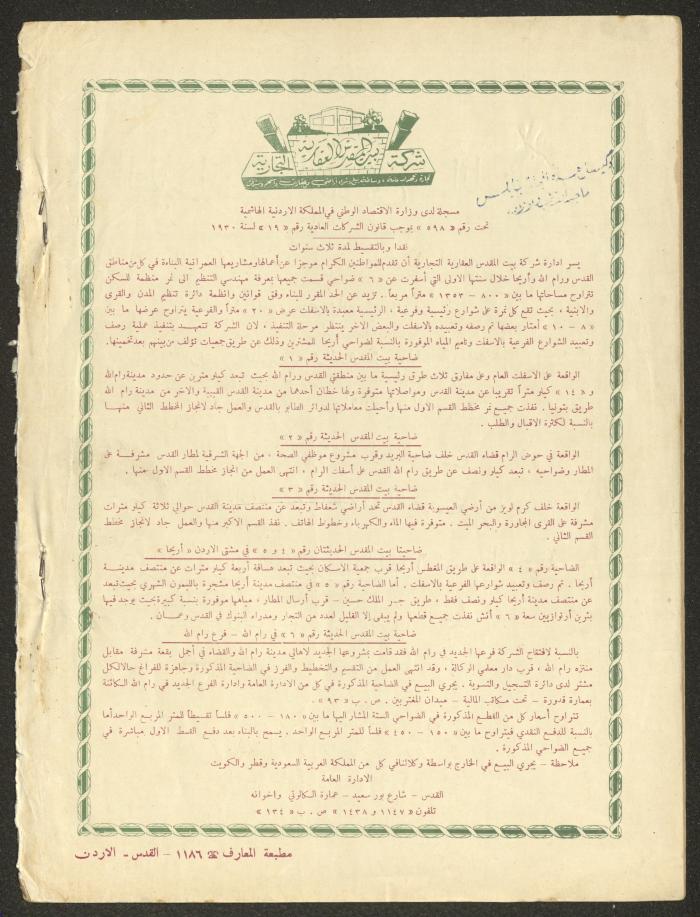 شركة بيت المقدس العقارية التجارية
مسجلة لدى وزارة الاقتصاد الوطني في المملكة الاردنية الهاشمية
تحت رقم « ٥٩٨ » بموجب قانون الشركات العادية رقم « ١٩ » لسنة ١٩٣٠
نقدا وبالتقسيط لمدة ثلاث سنوات
يسر ادارة شركة بيت المقدس العقارية التجارية أن تقدم للمواطنين الكرام موجزا عن أعمالها ومشاريعها العمرانية البناءة في كل من مناطق
القدس ورام الله وأريحا خلال سنتها الاولى التي أسفرت عن « ٦ » ضواحي قسمت جميعها بمعرفة مهندسي التنظيم الى نمر منظمة للسكن
تتراوح مساحاتها ما بين « ٨٠٠ – ١٣٥٣ » متراً مربعاً . تزيد عن الحد المقرر للبناء وفق قوانين وانظمة دائرة تنظيم المدن والقرى
والابنية ، بحيث تقع كل نمرة على شوارع رئيسية وفرعية ، الرئيسية معبدة بالاسفلت عرض « ٢٠ » متراً والفرعية يتراوح عرضها ما بين
« ٨ – ١٠ » أمتار بعضها تم رصفه وتعبيده بالاسفلت والبعض الاخر ينتظر مرحلة التنفيذ ، لان الشركة تتعهد بتنفيذ عملية رصف
وتعبيد الشوارع الفرعية بالاسفلت وتأمين المياه الموفورة بالنسبة لضواحي أريحا للمشترين وذلك عن طريق جمعيات تؤلف من بينهم بعد تخمينها.
ضاحية بيت المقدس الحديثة رقم « ١ »
الواقعة على الاسفلت العام وعلى مفارق ثلاث طرق رئيسية ما بين منطقتي القدس ورام الله بحيث تبعد كيلو مترين عن حدود مدينة رام الله
و « ١٤ » كيلو متراً تقريبا عن مدينة القدس ومواصلاتها متوفرة ولها خطان أحدهما من مدينة القدس القبيبة والاخر من مدينة رام الله
طريق بتونيا . نفذت جميع نمر مخطط القسم الاول منها وأحيلت معاملاتها لدوائر الطابو بالقدس والعمل جاد لانجاز المخطط الثاني منها
بالنسبة لكثرة الاقبال والطلب .
ضاحية بيت المقدس الحديثة رقم « ٢ »
الواقعة في حوض الرام قضاء القدس خلف ضاحية البريد وقرب مشروع موظفي الصحة ، من الجهة الشرقية لمطار القدس مشرفة على
المطار وضواحيه ، تبعد كيلو ونصف عن طريق رام الله القدس على أسفلت الرام ، انتهى العمل من انجاز مخطط القسم الاول منها .
ضاحية بيت المقدس الحديثة رقم « ٣ »
الواقعة خلف كرم لويز من أرضي العيسوية قضاء القدس تحد أراضي شعفاط وتبعد عن منتصف مدينة القدس حوالي ثلاثة كيلو مترات
مشرفة على القرى المجاورة والبحر الميت . متوفرة فيها الماء والكهرباء وخطوط الهاتف . نفذ القسم الاكبر منها والعمل جاد لانجاز مخطط
القسم الثاني .
ضاحيتا بيت المقدس الحديثتان رقم « ٤ و ٥ » في مشتى الاردن « أريحا »
الضاحية رقم « ٤ » الواقعة على طريق المغطس أريحا قرب جمعية الاسكان بحيث تبعد مسافة أربعة كيلو مترات عن منتصف مدينة
أريحا . تم رصف وتعبيد شوارعها الفرعية بالاسفلت . أما الضاحية رقم « ٥ » في منتصف مدينة أريحا مشجرة بالليمون الشهري بحيث تبعد
عن منتصف مدينة أريحا كيلو ونصف فقط ، طريق جسر الملك حسين – قرب أرسال المطار ، مياهها موفورة بنسبة كبيرة بحيث يوجد فيها
بئرين أرتوازيين سعة « ٦ » أنش نفذت جميع قطعها ولم يبقى الا القليل لعدد من التجار ومدراء البنوك في القدس وعمان .
ضاحية بيت المقدس الحديثة رقم « ٦ » في رام الله – فرع رام الله
بالنسبة لافتتاح الشركة فرعها الجديد في رام الله فقد قامت بمشروعها الجديد لاهالي مدينة رام الله والقضاء في أجمل بقعة مشرفة مقابل
منتزه رام الله ، قرب دار معلمي الوكالة ، وقد انتهى العمل من التقسيم والتخطيط والفرز في الضاحية المذكورة وجاهزة للفراغ حالا لكل
مشتر لدى دائرة التسجيل والتسوية . يجري البيع في الضاحية المذكورة في كل من الادارة العامة وادارة الفرع الجديد في رام الله الكائنة
بعمارة قدورة – تحت مكاتب المالية – ميدان المغتربين . ص . ب « ٩٣ » .
تتراوح أسعار كل من القطع المذكورة في الضواحي الستة المشار اليها ما بين « ١٨٠ – ٥٠٠ » فلساً تقسيطاً للمتر المربع الواحد أما
بالنسبة للدفع النقدي فيتراوح ما بين « ١٥٠ – ٤٥٠ » فلساً للمتر المربع الواحد . يسمح بالبناء بعد دفع القسط الاول مباشرة في
جميع الضواحي المذكورة .
ملاحظة – يجري البيع في الخارج بواسطة وكلائنا في كل من المملكة العربية السعودية وقطر والكويت
الادارة العامة
القدس – شارع بور سعيد – عمارة السكالوتي واخوانه
تلفون « ١١٤٧ و ١٤٣٨ » ص . ب « ١٣٤ »
مطبعة المعارف ☎ ١١٨٦ – القدس – الاردن